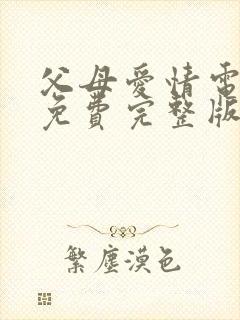 父母愛情電
免費完整版
繁塵漠色